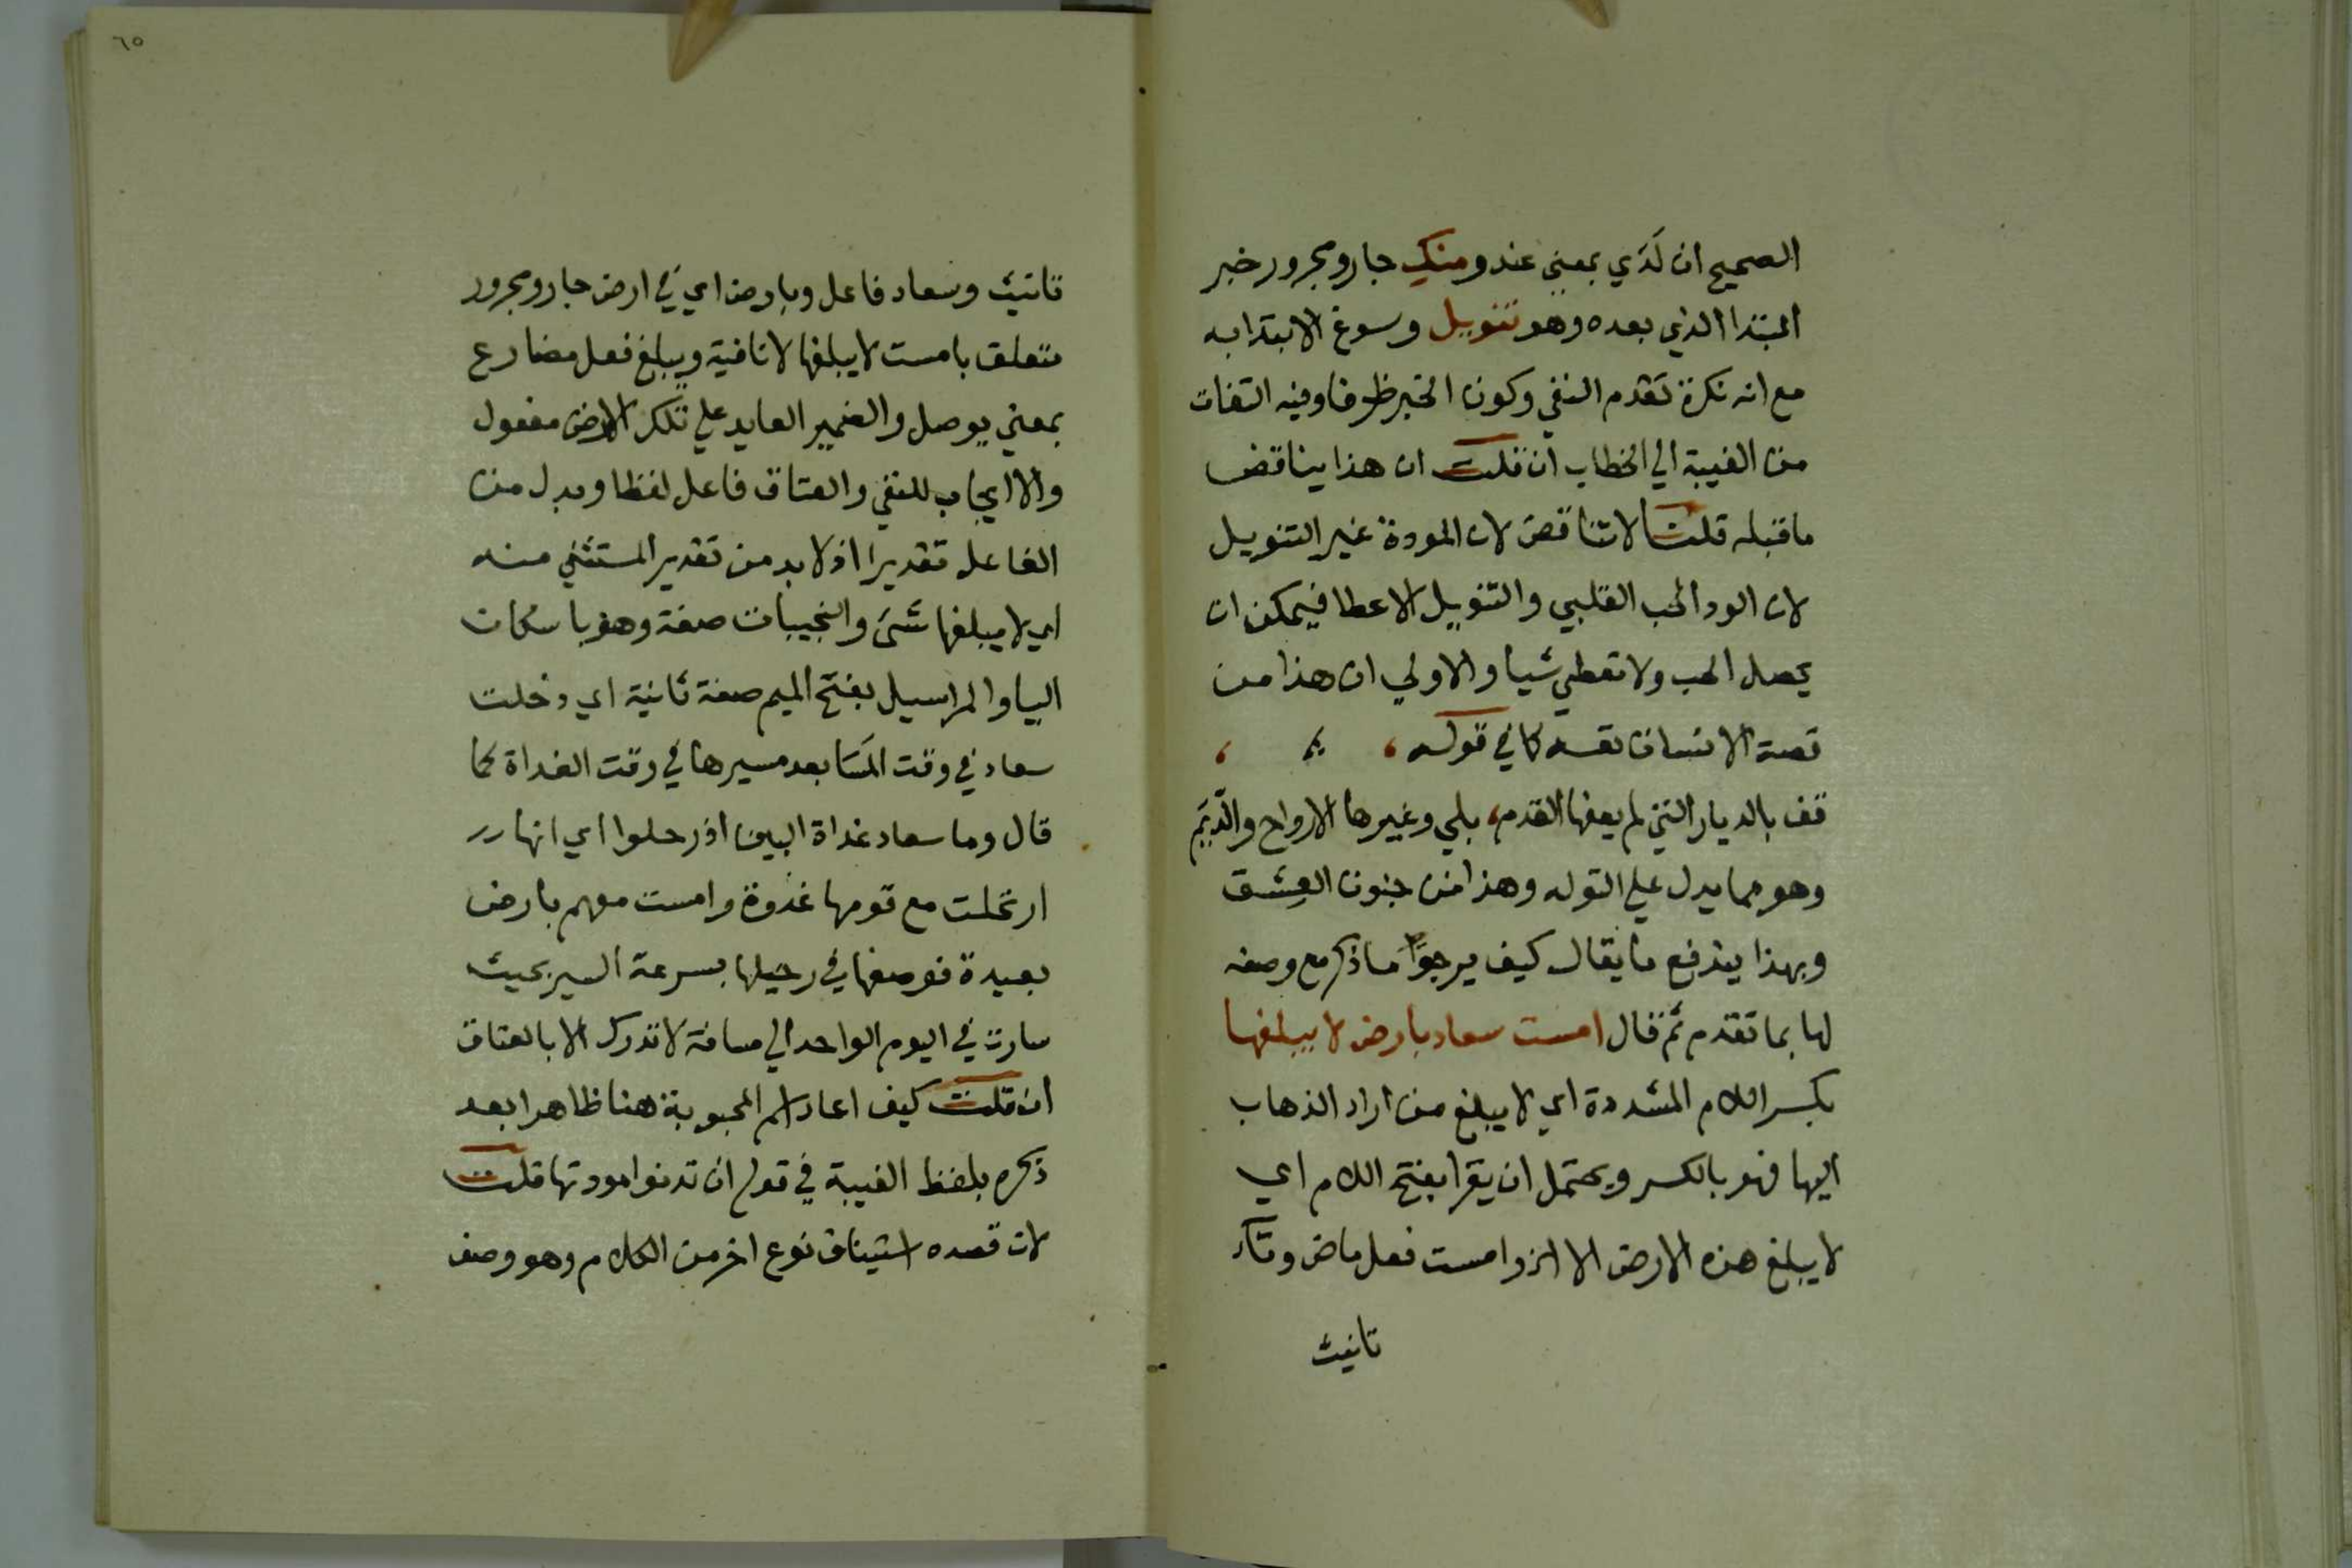 الصحيح ان لَدَي بمعني عند ومنكِ جار ومجرور خبر
المبتدا الذي بعده وهو تنويل وسوغ الابتدا به
مع انه نكرة تقدم النفي وكون الخبر ظرفا وفيه التفات
من الغيبة الي الخطاب ان قلت ان هذا يناقض
ما قبله قلت لا تناقض لان المودة غير التنويل
لان الود الحب القلبي والتنويل الاعطا فيمكن ان
يحصل الحب ولا تعطي شيا والاولي ان هذا من
قصة الانسان نفسه كما في قوله ،
قف بالديار التي لم يعفها القدم ، بلي وغيرها الارواح والدِّيَم
وهو مما يدل علي التوله وهذا من جنون العِشق
وبهذا يندفع ما يقال كيف يرجوا ما ذكر مع وصفه
لها بما تقدم ثم قال امست سعاد بارض لا يبلغها
بكسر اللام المشددة اي لا يبلغ من اراد الذهاب
اليها فهو بالكسر ويحتمل ان يقرا بفتح اللام اي
لا يبلغ هذه الارض الا الخ وامست فعل ماض وتاء
تانيث
٦٥
تانيث وسعاد فاعل وبارض اي في ارض جار ومجرور
متعلق بامست لا يبلغها لا نافية ويبلغ فعل مضارع
بمعني يوصل والضمير العايد علي تلك الارض مفعول
والا ايجاب للنفي والعتاق فاعل لفظا وبدل من
الفاعل تقديرا اذ لا بد من تقدير المستثني منه
اي لا يبلغها شئ والنجيبات صفة وهو باسكان
اليا والمراسيل بفتح الميم صفة ثانية اي دخلت
سعاد في وقت المَسَا بعد مسيرها في وقت الغداة كما
قال وما سعاد غداة البين اذ رحلوا اي انها
ارتحلت مع قومها غدوة وامست معهم بارض
بعيدة فوصفها في رحيلها بسرعة السير بحيث
سارت في اليوم الواحد الي مسافة لا تدرك الا بالعتاق
ان قلت كيف اعاد اسم المحبوبة هنا ظاهرا بعد
ذكره بلفظ الغيبة في قوله ان تدنوا مودتها قلت
لان قصده استيناف نوع اخر من الكلام وهو وصف